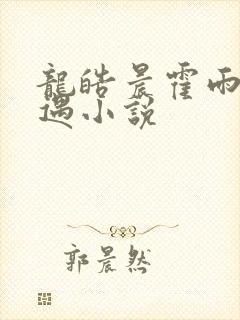 龍皓晨霍雨
遇小說
郭晨然